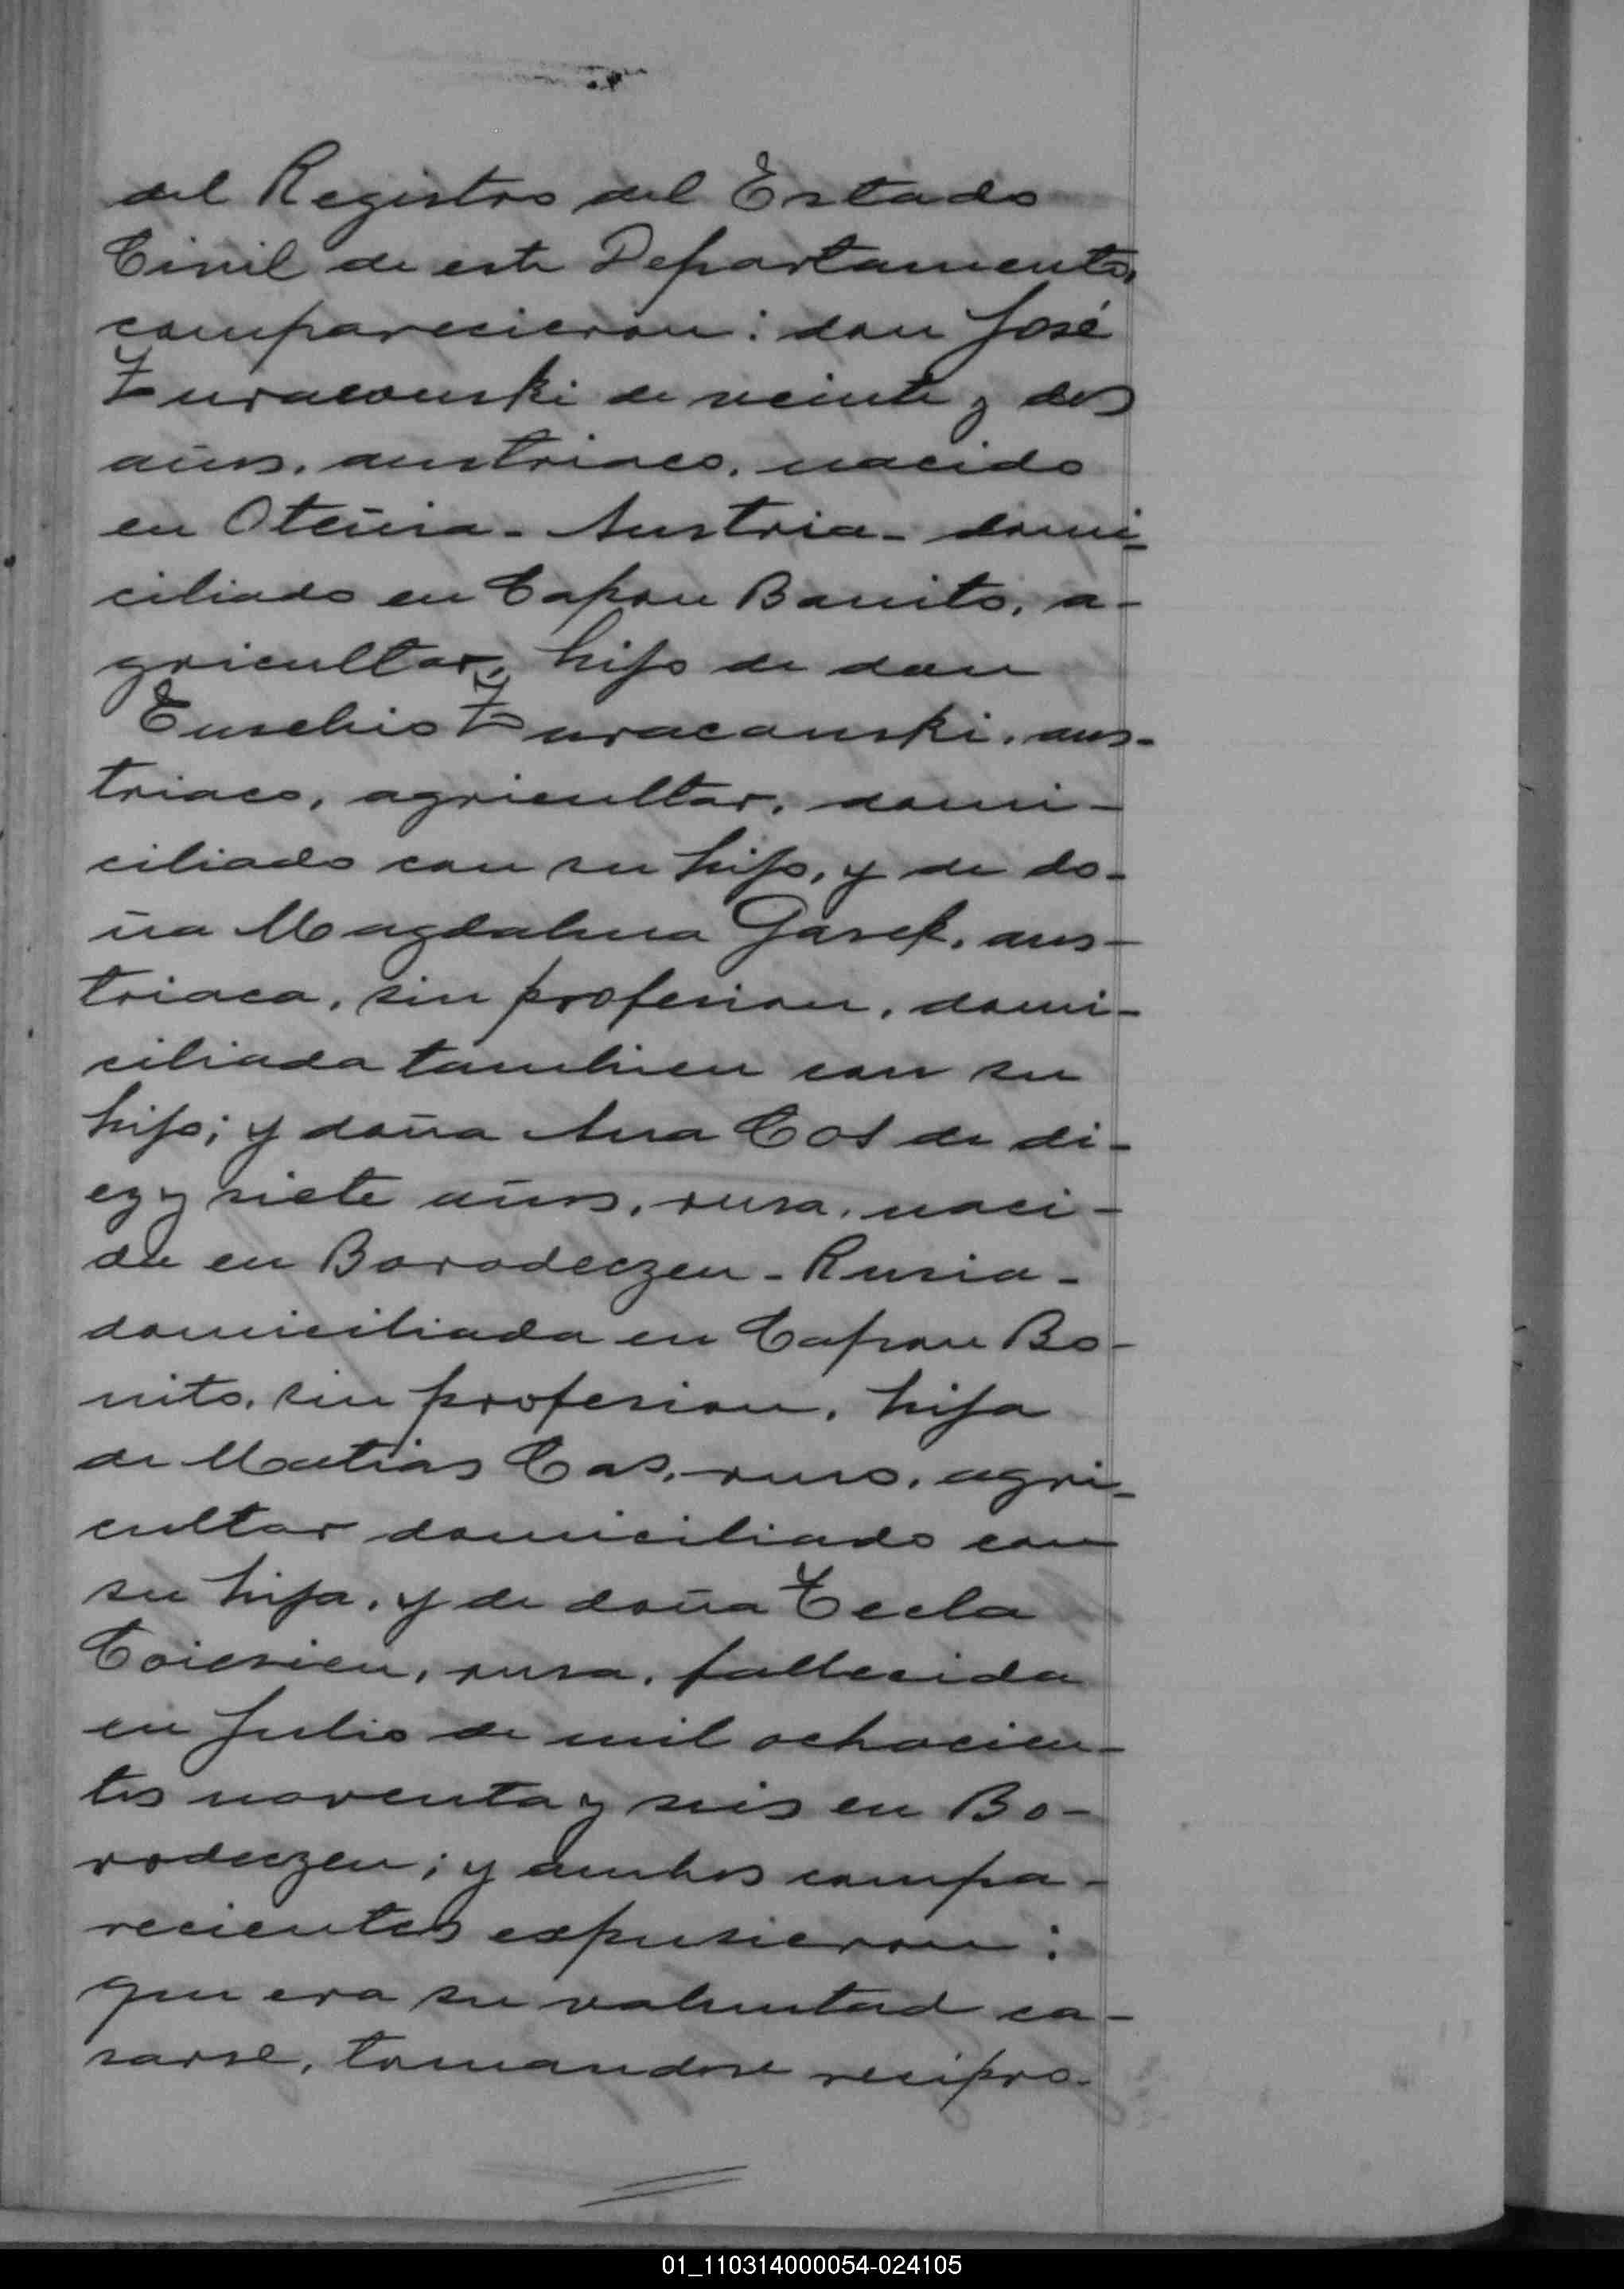 del Registro del Estado
Civil de este Departamento,
comparecieron: don José
Zuracouski de veinte y dos
años, austriaco, nacido
en Oteñia - Austria - domi-
ciliado en Capon Bonito, a-
gricultor, hijo de don
Eusebio Zuracouski, aus-
triaco, agricultor, domi-
ciliado con su hijo, y de do-
ña Magdalena Gasek, aus-
triaca, sin profesion, domi-
ciliada tambien con su
hijo; y doña Ana Cos de di-
ez y siete años, rusa, naci-
da en Borodeczen - Rusia -
domiciliada en Capon Bo-
nito, sin profesion, hija
de Matias Cos, ruso, agri-
cultor domiciliado con
su hija, y de doña Tecla
rusa, fallecida
en Julio de mil ochocien-
tos noventa y seis en Bo-
rodeczen; y ambos compa-
recientes expusieron:
que era su voluntad ca-
sarse, tomandose recipro-
01_110314000054-024105